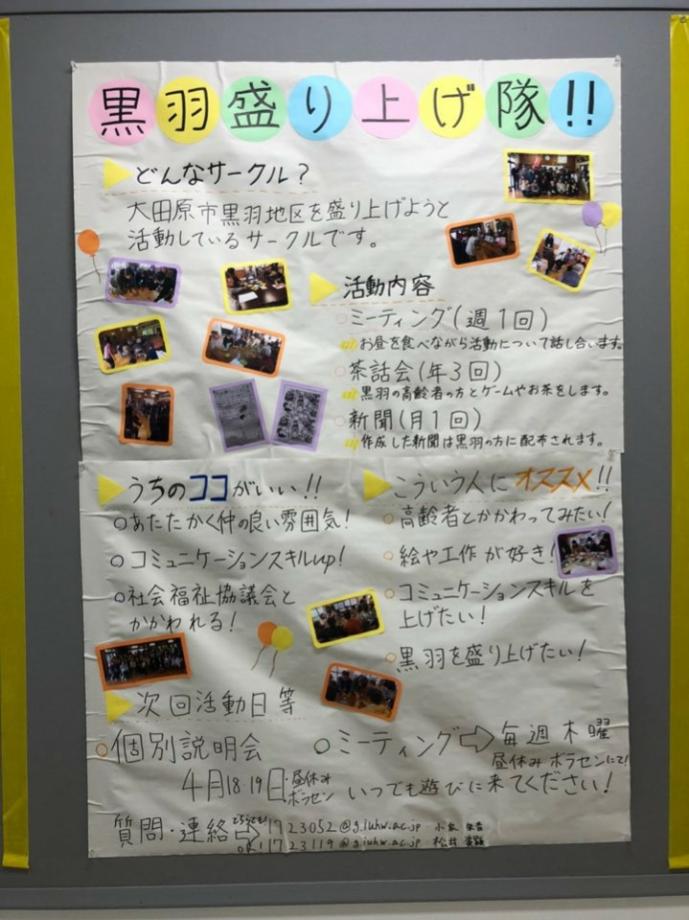 黒羽盛り上げ隊!!
どんなサークル?
大田原市黒羽地区を盛り上げようと
活動しているサークルです。
活動内容
ミーティング(週1回)
お昼を食べながら活動について話し合います。
茶話会(年3回)
黒羽の高齢者の方とゲームやお茶をします。
新聞(月1回)
作成した新聞は黒羽の方に配布されます。
うちのココがいい!!
あたたかく仲の良い雰囲気!
コミュニケーションスキルup!
社会福祉協議会と
かかわれる!
こういう人にオススメ!!
高齢者とかかわってみたい!
絵や工作が好き!
コミュニケーションスキルを
上げたい!
黒羽を盛り上げたい!
次回活動日等
個別説明会
4月18・19日・昼休み
ボラセン
ミーティング⇨毎週木曜
昼休みボラセンにて!
いつでも遊びに来てください!
質問・連絡 どちらでもOK!⇨
1723052@g.iuhw.ac.jp
1723119@g.iuhw.ac.jp 松井